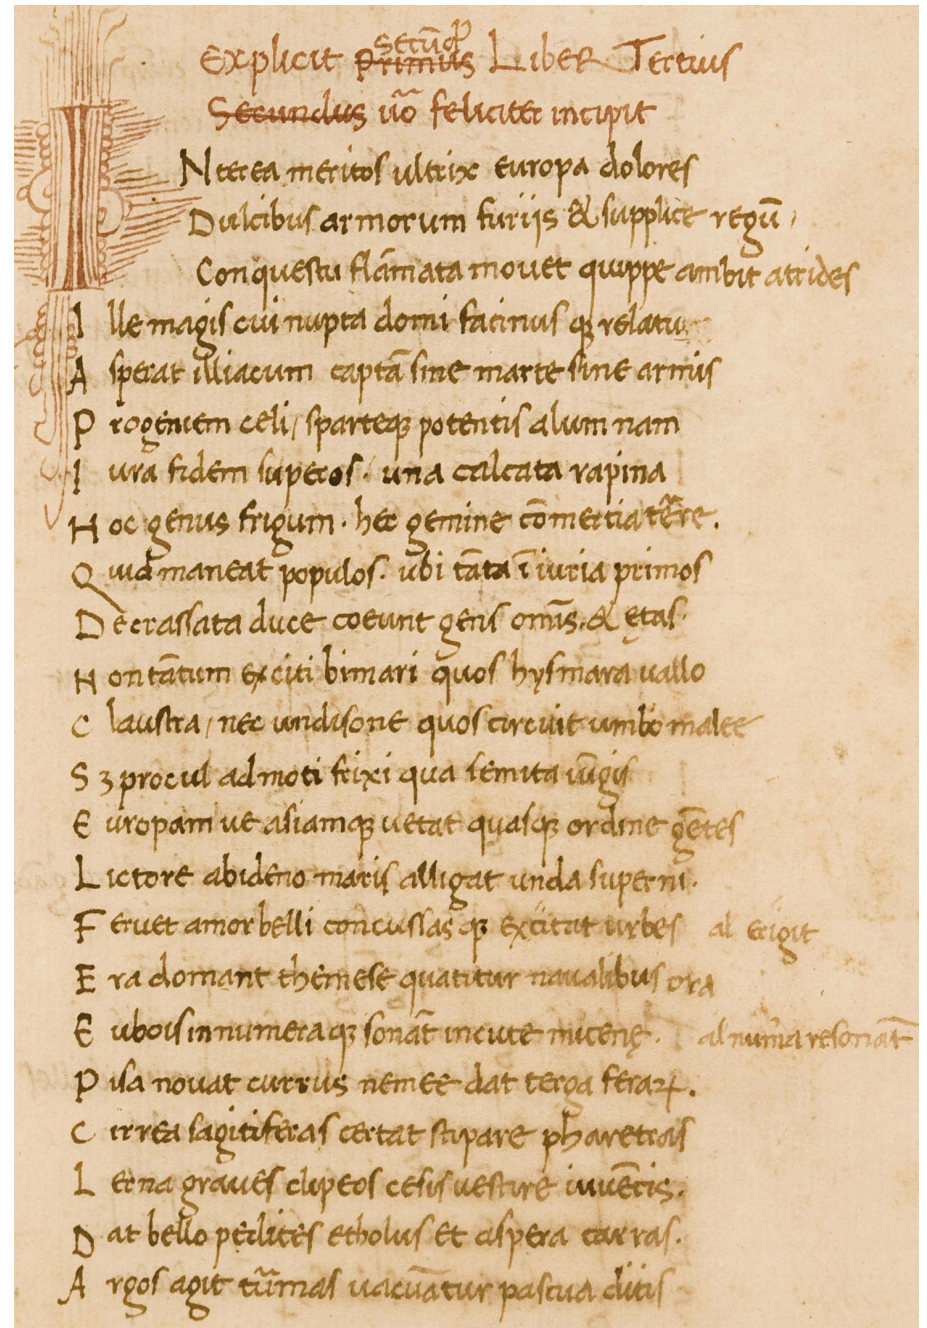 Explicit Primus Secūdꝰ Liber Tertius
Secundus ūo feliciter incipit
INterea meritos ultrix europa dolores
Dulcibus armorum furijs & supplice regū /
Conquestu flāmata mouet quippe ambit atrides
Ille magis cui nupta domi facinusqꝫ relatu
Asperat illiacum captā sine marte sine armis
Progeniem celi / sparteqꝫ potentis alumnam
Iura fidem superos. una calcata rapina
Hoc genus frigum. hec gemine cōmertia terre.
Quid maneat populos. ubi tāta īiuria primos
Decrassata duce coeunt gens omīs. & ętas.
Non tātum exciti bimari quos hysmara uallo
Claustra / nec undisone quos circuit umbo malee
Sꝫ procul admoti frixi qua semita iūgis
Europam ue asiamqꝫ uetat quasqꝫ ordine gētes
Lictore abideno maris alligat unda superni.
Feruet amor belli concussasqꝫ excitat urbes al erigit
Era domant themese quatitur naualibus ora
Eubois innumeraqꝫ sonāt incute micenę. al numa resonāt
Pisa nouat currus nemee dat terga feraꝝ.
Cirrea sagitiferas certat stipare pharetras
Lerna graues clipeos cesis uestire iuuēcis.
Dat bello pedites etholus et aspera carras.
Argos agit turmas uacuātur pascua ditis